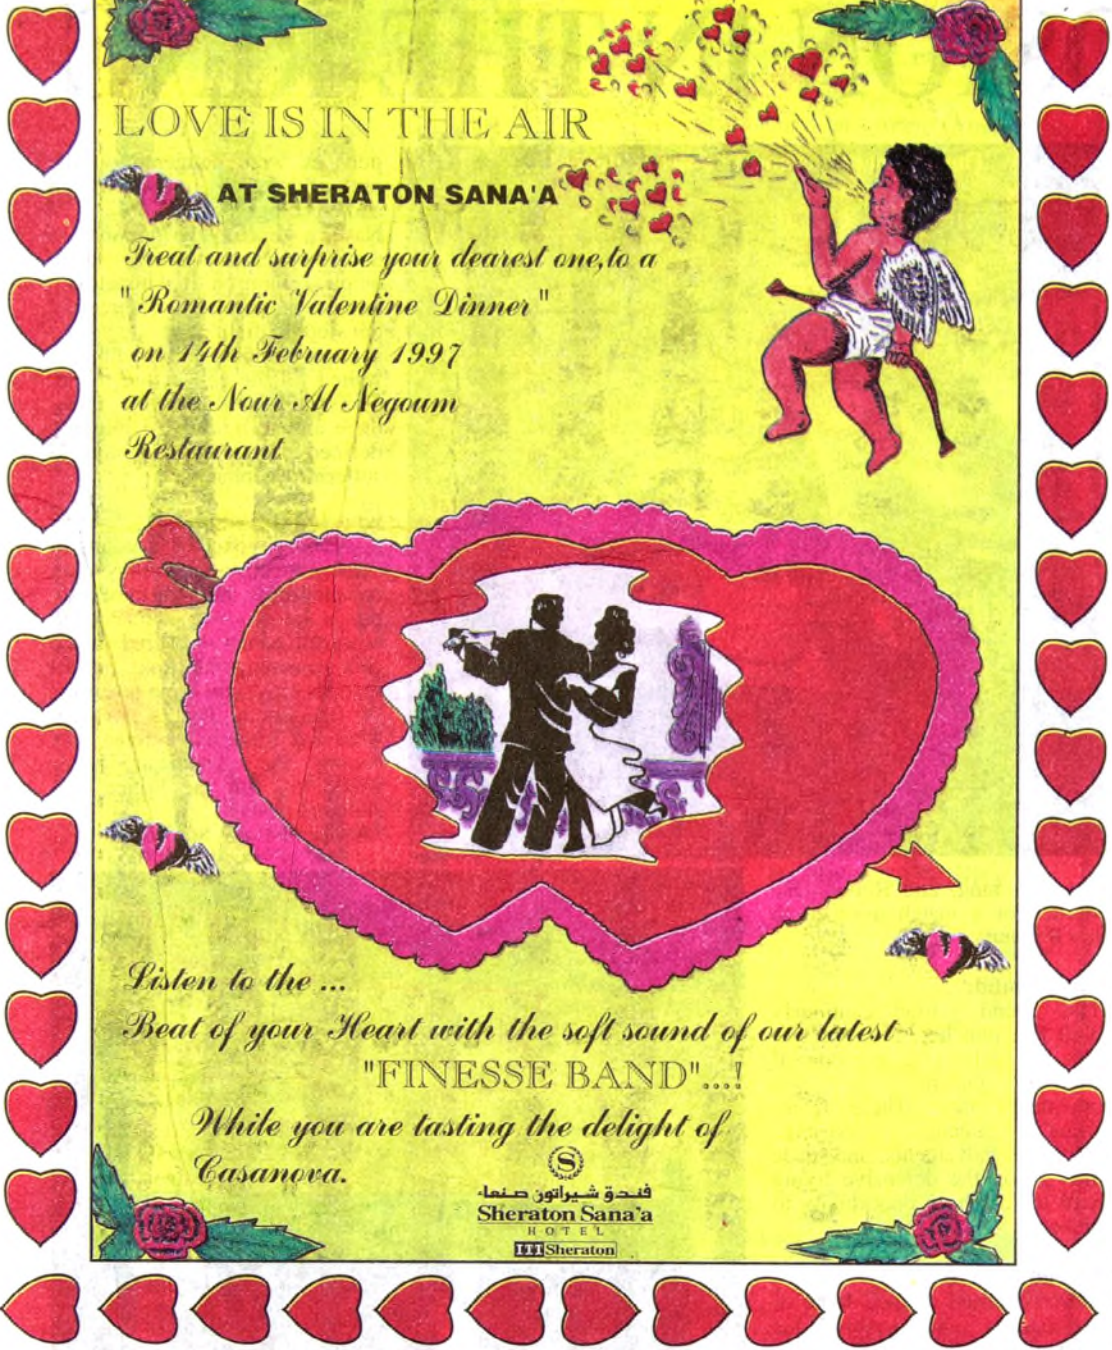 LOVE IS IN THE AIR
AT SHERATON SANA'A
Treat and surprise your dearest one, to a
" Romantic Valentine Dinner "
on 14th February 1997
at the Nour Al Negoum
Restaurant
Listen to the ...
Beat of your Heart with the soft sound of our latest
"FINESSE BAND"...!
While you are tasting the delight of
Casanova.
S
فندق شيراتون صنعاء
Sheraton Sana'a
HOTEL
ITT Sheraton